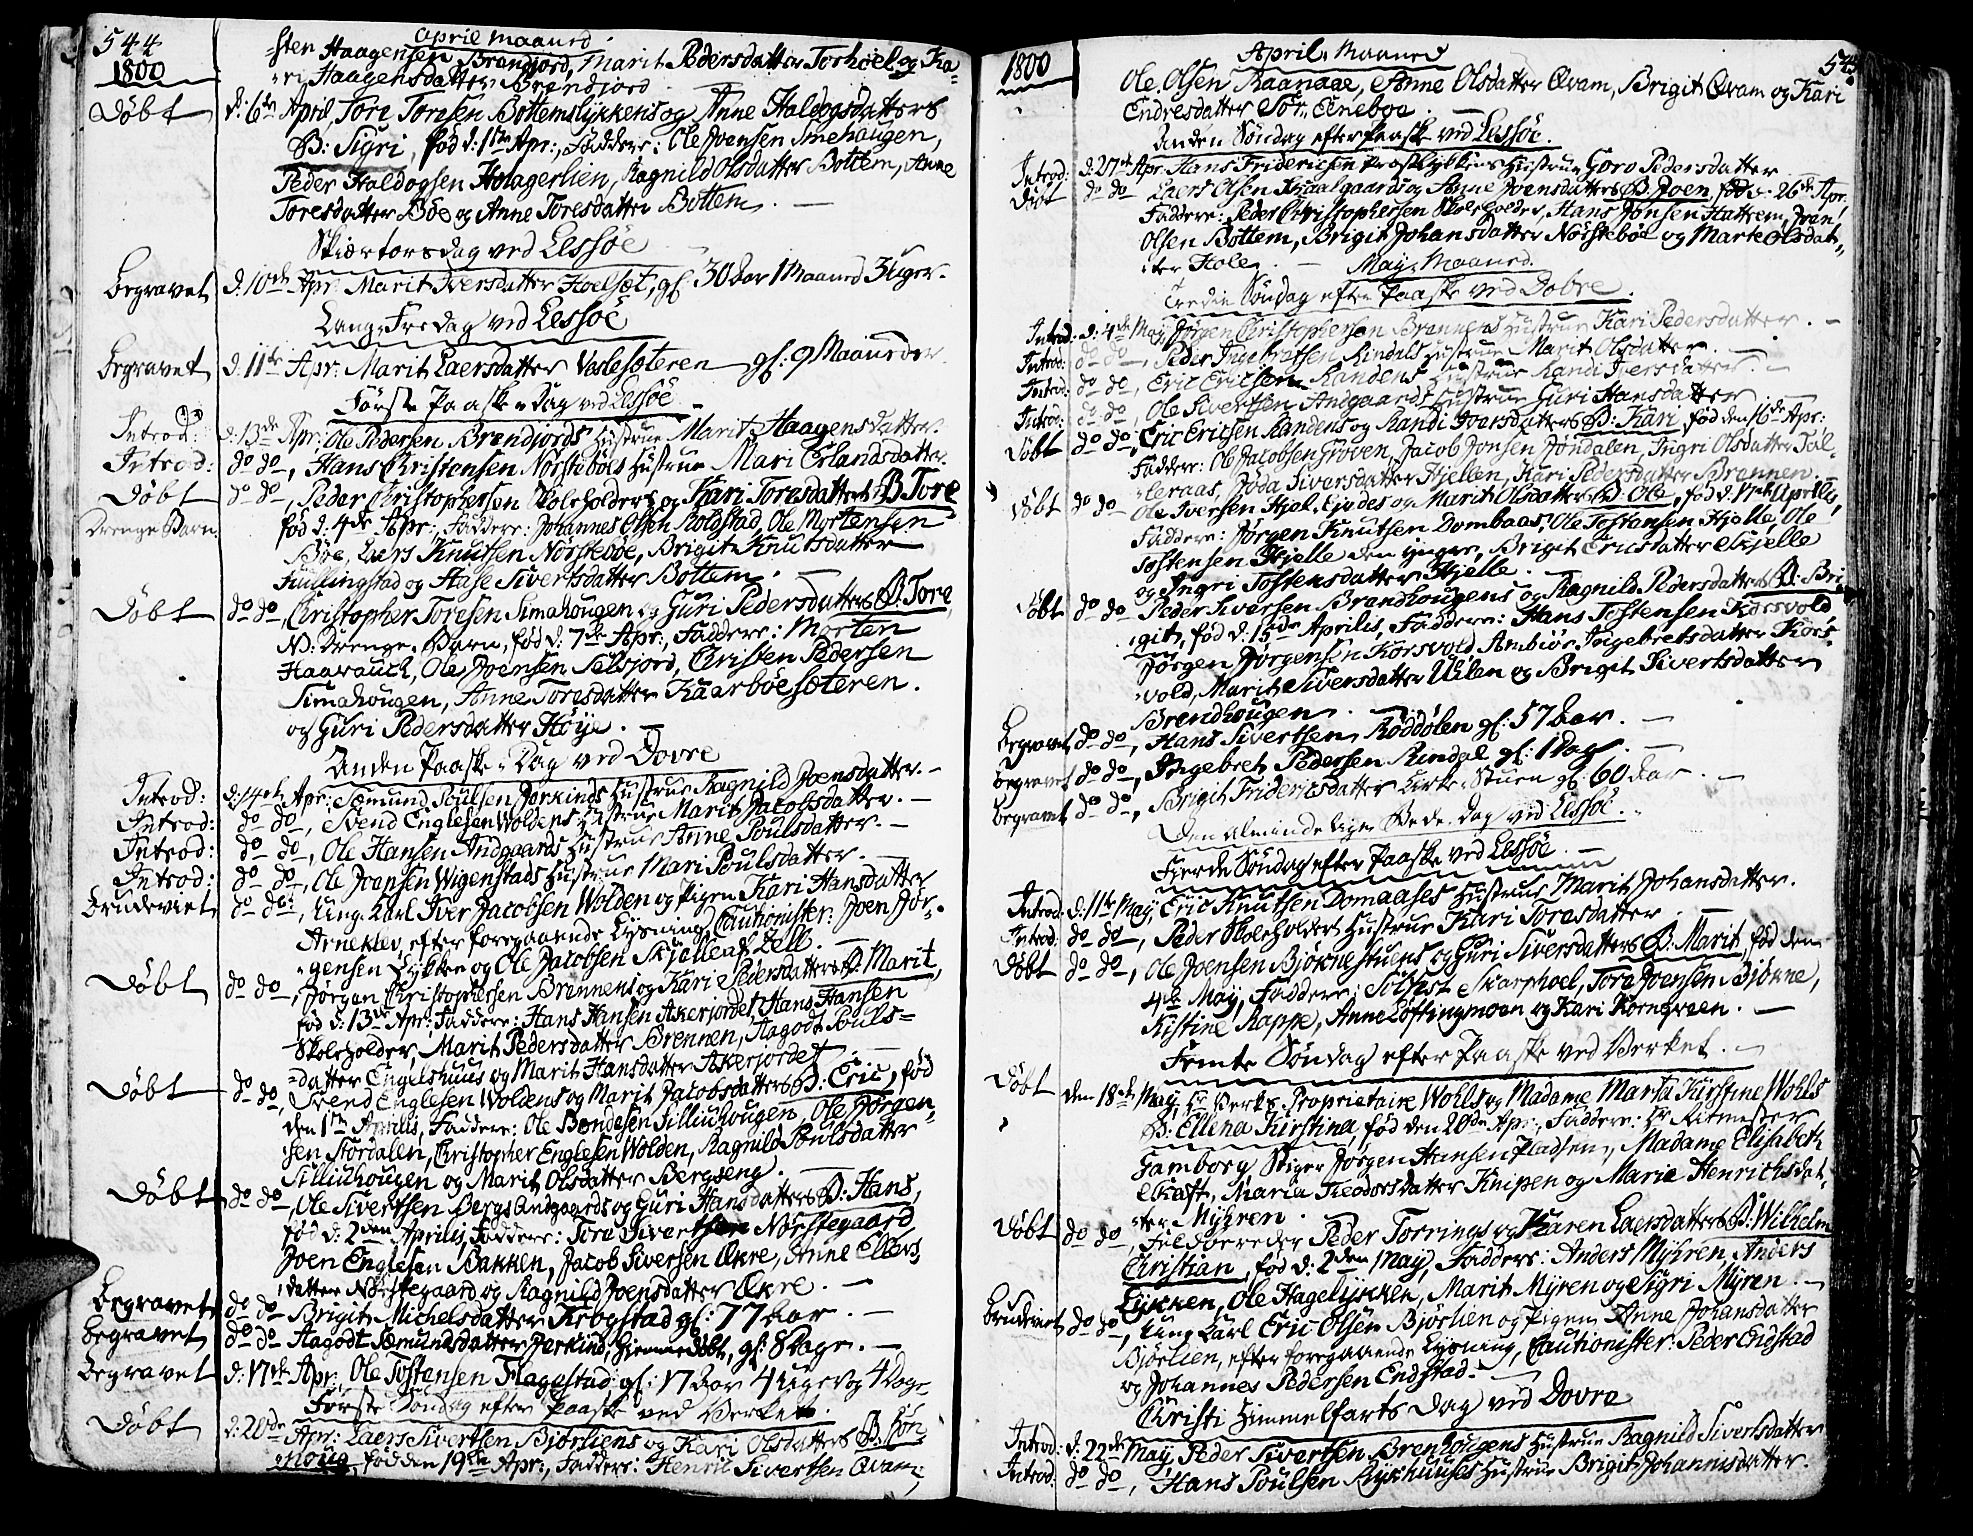 544
April Maaned
1800
sten Haagensen Brændjord, Marit Pedersdatter Torhoel og Ka-
ri Haagensdatter Brendjord
Døbt d: 6te April, Tore Toresen Bottemslykkens og Anne Haldogsdatters
B: Sigri, fød d: 1ste Apr:, Faddere: Ole Joensen Smehaugen,
Peder Haldogsen Holagerlien, Ragnild Olsdatter Bottem, Anne
Toresdatter Böe og Anne Toresdatter Bottem.
Skiærtorsdag ved Lessöe
Begravet d: 10de Apr: Marit Iversdatter Hoelsæt, gl: 30 Aar 1 Maaned 3 Uger.
Lang-Fredag ved Lessöe
Begravet d: 11te Apr: Marit Laersdatter Vaslesæteren gl: 9 Maaneder
Første Paaske-Dag ved Lessöe
Introd: d: 13de Apr: Ole Pedersen Brændjords Hustrue Marit Haagensdatter.
Introd: do do, Hans Christensen Nörsteböes Hustrue Mari Erlandsdatter.
Døbt do do, Peder Christophersen Skoleholders og Kari Toresdatters B: Tore
Drenge Barn. fød d: 4de Apr:, Faddere: Johannes Olsen Boldstad, Ole Mortensen
Böe, Laers Knutsen Nörsteböe, Brigit Knutsdatter
Kullingstad og Aase Sivertsdatter Bottem.
Døbt do do, Christopher Toresen Simahougen og Guri Pedersdatters B: Tore
N: Drenge-Barn, fød d: 7de Apr:, Faddere: Morten
Haarauch, Ole Joensen Selsjord, Christen Pedersen
Simahougen, Anne Toresdatter Kaarböesæteren.
og Guri Pedersdatter Höye.
Anden Paaske-Dag ved Dovre
Introd: d: 14de Apr: Sæmund Poulsen Jerkinds Hustrue Ragnild Joensdatter.
Introd: do do, Svend Englesen Woldens Hustrue Marit Jacobsdatter.
Introd: do do, Ole Hansen Andgaards Hustrue Anne Poulsdatter.
Introd: do do, Ole Joensen Wigenstads Hustrue Mari Poulsdatter.
Brudeviet do do, Ung Karl Iver Jacobsen Wolden og Pigen Kari Hansdatter
Arneklev, efter foregaaende Lysning, Cautionister: Joen Jör-
gensen Lykken og Ole Jacobsen Skjelle
Døbt do do, Jörgen Christophersen Brennens og Kari Pedersdatters B: Marit,
fød d: 13de Apr: Faddere: Hans Hansen Akerjordet, Hans Hansen
Skoleholder, Marit Pedersdatter Brennen, Hagodt Pouls-
datter Engelshuus og Marit Hansdatter Akerjordet
Døbt do do, Svend Englesen Woldens og Marit Jacobsdatters B: Eric, fød
den 1ste Aprilis, Faddere: Ole Bendesen Silliuhougen, Ole Jörgen-
sen Stordalen, Christopher Englesen Wolden, Ragnild Poulsdatter
Silliuhougen og Marit Olsdatter Bergseng.
Døbt do do, Ole Sivertsen Bergs Andgaards og Guri Hansdatters B: Hans,
fød d: 2den Aprilis, Faddere: Tore Sivertsen Nörstegaard,
Joen Englesen Bakken, Jacob Siversen Ekre, Anne Ellevs
datter Nörstegaard og Ragnild Joensdatter Ekre.
Begravet do do Brigit Michelsdatter Krogstad gl: 77 Aar.
Begravet do do Hagodt Sæmundsdatter Jerkind, hjemmedöbt, gl: 8 Dage.
Begravet d: 17de Apr: Ole Tostensen Flagestad gl: 17 Aar 4 Uger og 4 Dage
Første Söndag efter Paaske ved Verket.
Døbt d: 20de Apr: Laers Sivertsen Björliens og Kari Olsdatters B: Høn-
noug, fød den 19de Apr:, Faddere: Henric Sivertsen Qvam,
1800
April Maaned
545
Ole Olsen Raanaae, Anne Olsdatter Qvam, Brigit Qvam og Kari
Endresdatter Sör-Eneboe.
Anden Söndag efter Paaske ved Lessöe.
Introd: d: 27de Apr: Hans Friderichsen Hustrue Goro Pedersdatter
Døbt do do Laers Olsen Skaalgaards og Anne Joensdatters B: Joen, fød d: 26de Apr:
Faddere: Peder Christophersen Skoleholder, Hans Jonsen Hattrem, Joen
Olsen Bottem, Brigit Johansdatter Nörsteböe og Marte Olsdat-
ter Hole.
May-Maaned.
Tredie Söndag efter Paaske ved Dovre.
Introd: d: 4de May Jörgen Christophersen Brennens Hustrue Kari Pedersdatter.
Introd: do do, Peder Ingebretsen Rindals Hustrue Marit Olsdatter.
Introd: do do, Eric Ericsen Randens Hustrue Randi Iversdatter.
Introd: do do, Ole Sivertsen Andgaards Hustrue Guri Hansdatter
Døbt do do, Eric Ericsen Randens og Randi Iversdatters B: Kari, fød den 16de Apr:
Faddere: Ole Jacobsen Groven, Jacob Jonsen Jöndalen, Ingri Olsdatter Tal-
leraas, Jöda Siversdatter Hjellen, Kari Pedersdatter Brennen
Døbt do do Ole Iversen Hjelles og Marit Olsdatters B: Ole, fød d: 17de Aprilis,
Faddere: Jörgen Knutsen Dombaas, Ole Tostensen Hjelle, Ole
Tostensen Hjelle den yngre, Brigit Ericsdatter Hjelle
og Ingri Tostensdatter Hjelle.
Døbt do do Peder Siversen Brandhougens og Ragnild Pedersdatters B: Bri-
git, fød d: 15de Aprilis, Faddere: Hans Tostensen Korsvold
Jörgen Jörgensen Korsvold, Ambiör Ingebretsdatter Kors-
vold, Marit Siversdatter Uhlen og Brigit Sivertsdatter
Brendhougen.
Begravet do do, Hans Sivertsen Röddölen gl: 57 Aar.
Begravet do do, Ingebret Pedersen Rindal gl: 1 Dag.
Begravet do do, Brigit Friderichsdatter Kirke-Stuen gl: 60 Aar.
Den Almindelige Bede-Dag ved Lessöe.
Fierde Söndag efter Paaske ved Lessöe.
Introd: d: 11te May Eric Knutsen Domaases Hustrue Marit Johansdatter.
Introd: do do, Peder Skoleholders Hustrue Kari Toresdatter.
Døbt do do, Ole Joensen Björnestuens og Guri Siversdatters B: Marit, fød den
4de May, Faddere: Solfest Skarphoel, Tore Joensen Björne,
Kistine Rappe, Anne Löftingmoen og Kari Korngreen.
Femte Söndag efter Paaske ved Verket.
Døbt den 18de May, Hr Verks-Proprietaire Wohls og Madame Marta Kirstine Wohls
B: Ellena Kirstina, fød den 20de Apr:, Faddere: Hr Ritmester
Famborg, Stiger Jörgen Hansen Pladsen, Madame Elisabeth
Kraft, Maria Theodorsdatter Knipen og Marie Henrichsdat-
ter Myhren.
Døbt do do, Fuldbereder Peder Torrings og Karen Laersdatters B: Wilhelm
Christian, fød d: 2den May, Faddere: Anders Myhren, Anders
Lykken, Ole Hagelykken, Marit Myren og Sigri Myren.
Brudeviet do do, Ung Karl Eric Olsen Björlien og Pigen Anne Johansdatter
Björlien, efter foregaaende Lysning, Cautionister: Peder Endstad
og Johannes Pedersen Endstad.
Christi Himmelfarts Dag ved Dovre
Introd: d: 22de May, Peder Sivertsen Brenhougens Hustrue Ragnild Siversdatter
Introd: do do, Hans Poulsen Rykhuuses Hustrue Brigit Johannisdatter.